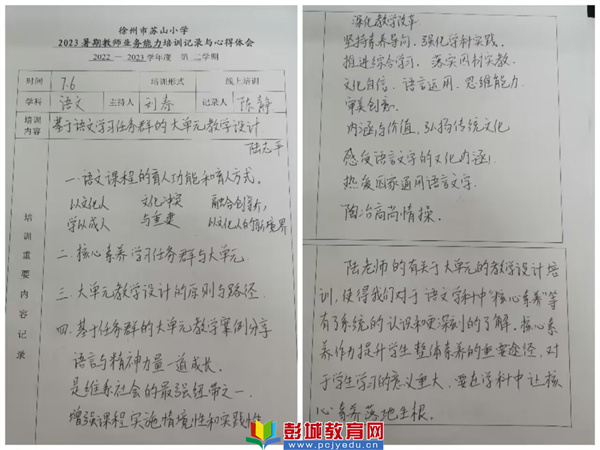 徐州市苏山小学
2023暑期教师业务能力培训记录与心得体会
2022 — 2023学年度 第 二学期
时间 7.6 培训形式 线上培训
学科 语文 主持人 刘寿 记录人 陈静
培训内容 基于语文学习任务群的大单元教学设计
陆志平
培训重要内容记录
一.语文课程的育人功能和育人方式.
以文化人 文化冲突 融合创新,
学以成人 与重建 以文化人的新境界
二.核心素养学习任务群与大单元
三.大单元教学设计的原则与路径.
四.基于任务群的大单元教学案例分享
语言与精神力量一道成长.
是维系社会的最强纽带之一.
增强课程实施情境性和实践性
深化教学改革.
坚持素养导向,强化学科实践.
推进综合学习,落实因材施教.
文化自信、语言运用、思维能力、
审美创意.
内涵与价值,弘扬传统文化
感受语言文字的文化内涵
热爱国家通用语言文字.
陶冶高尚情操.
陆老师的有关于大单元的教学设计培
训,使得我们对于语文学科中“核心素养”等
有了系统的认识和更深刻的了解.核心素
养作为提升学生整体素养的重要途径,对
于学生学习的意义重大,要在学科中让核
心素养落地生根.
彭城教育网
www.pcjyedu.cn